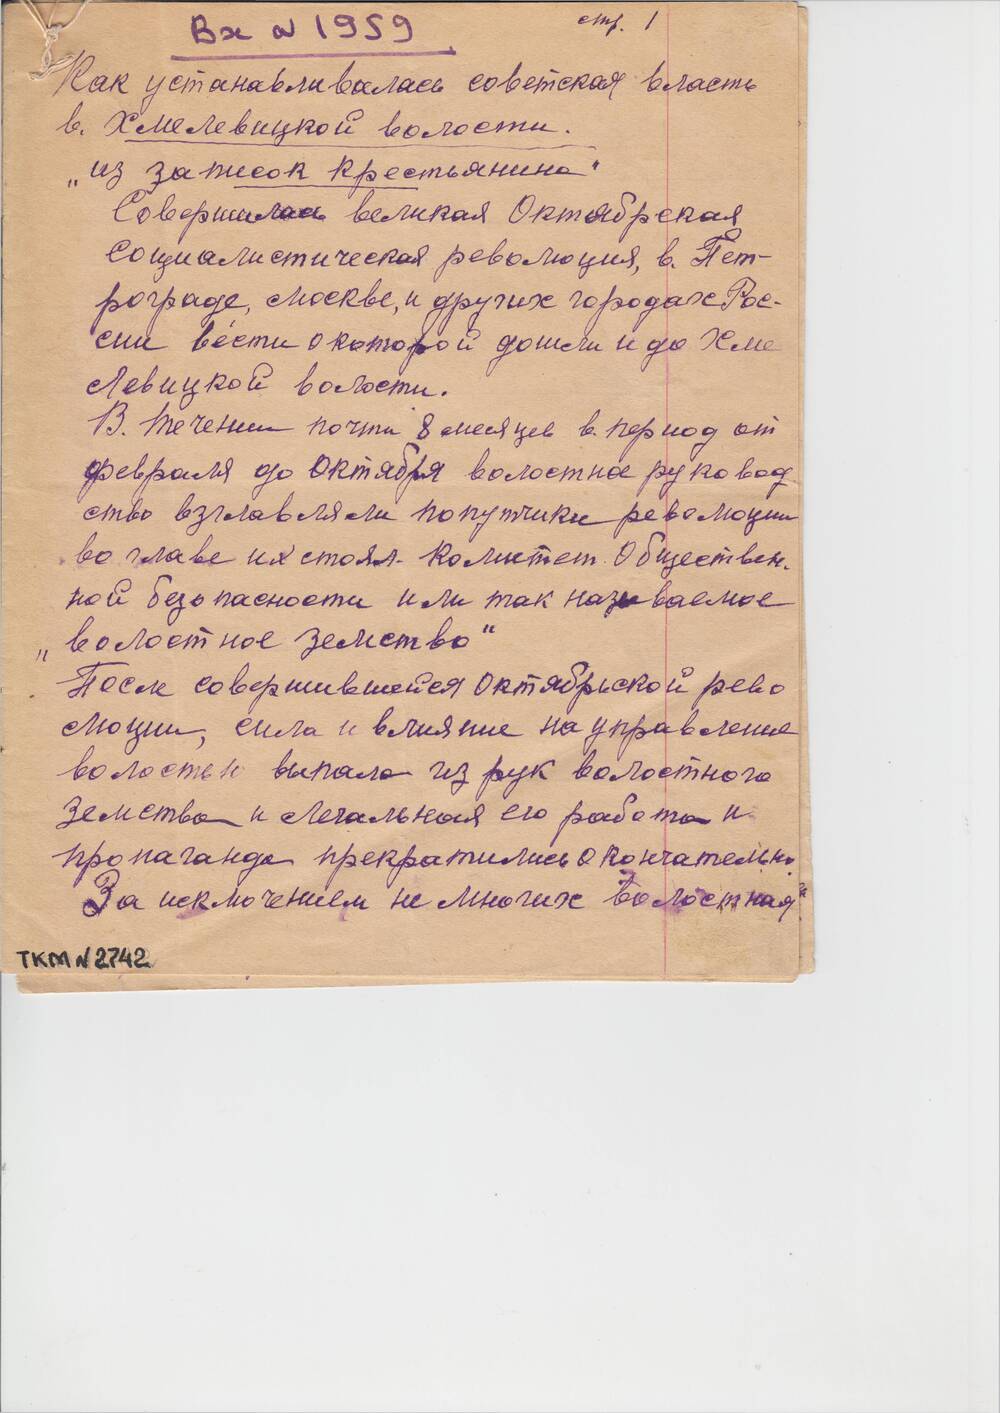 Вх № 1959
стр. 1
Как устанавливалась советская власть
в. Хмелевицкой волости.
„из записок крестьянина"
Совершилась великая Октябрская
социалистическая революция, в. Пет-
рограде, Москве, и других городах Рос-
сии вести о которой дошли и до Хме
левицкой волости.
В. течении почти 8 месяцев в. период от
февраля до Октября волостное руковод
ство взглавляли попутчики революции
во главе их стоял. комитет Обществен.
ной безопасности или так называемое
„волостное земство"
После совершившейся Октябрьской рево
люции, сила и влияние на управление
волостью выпало из рук волостного
земства и легальная его работа и
пропаганда прекратились окончательно
За исключением не многих волостная
ТКМ № 2742